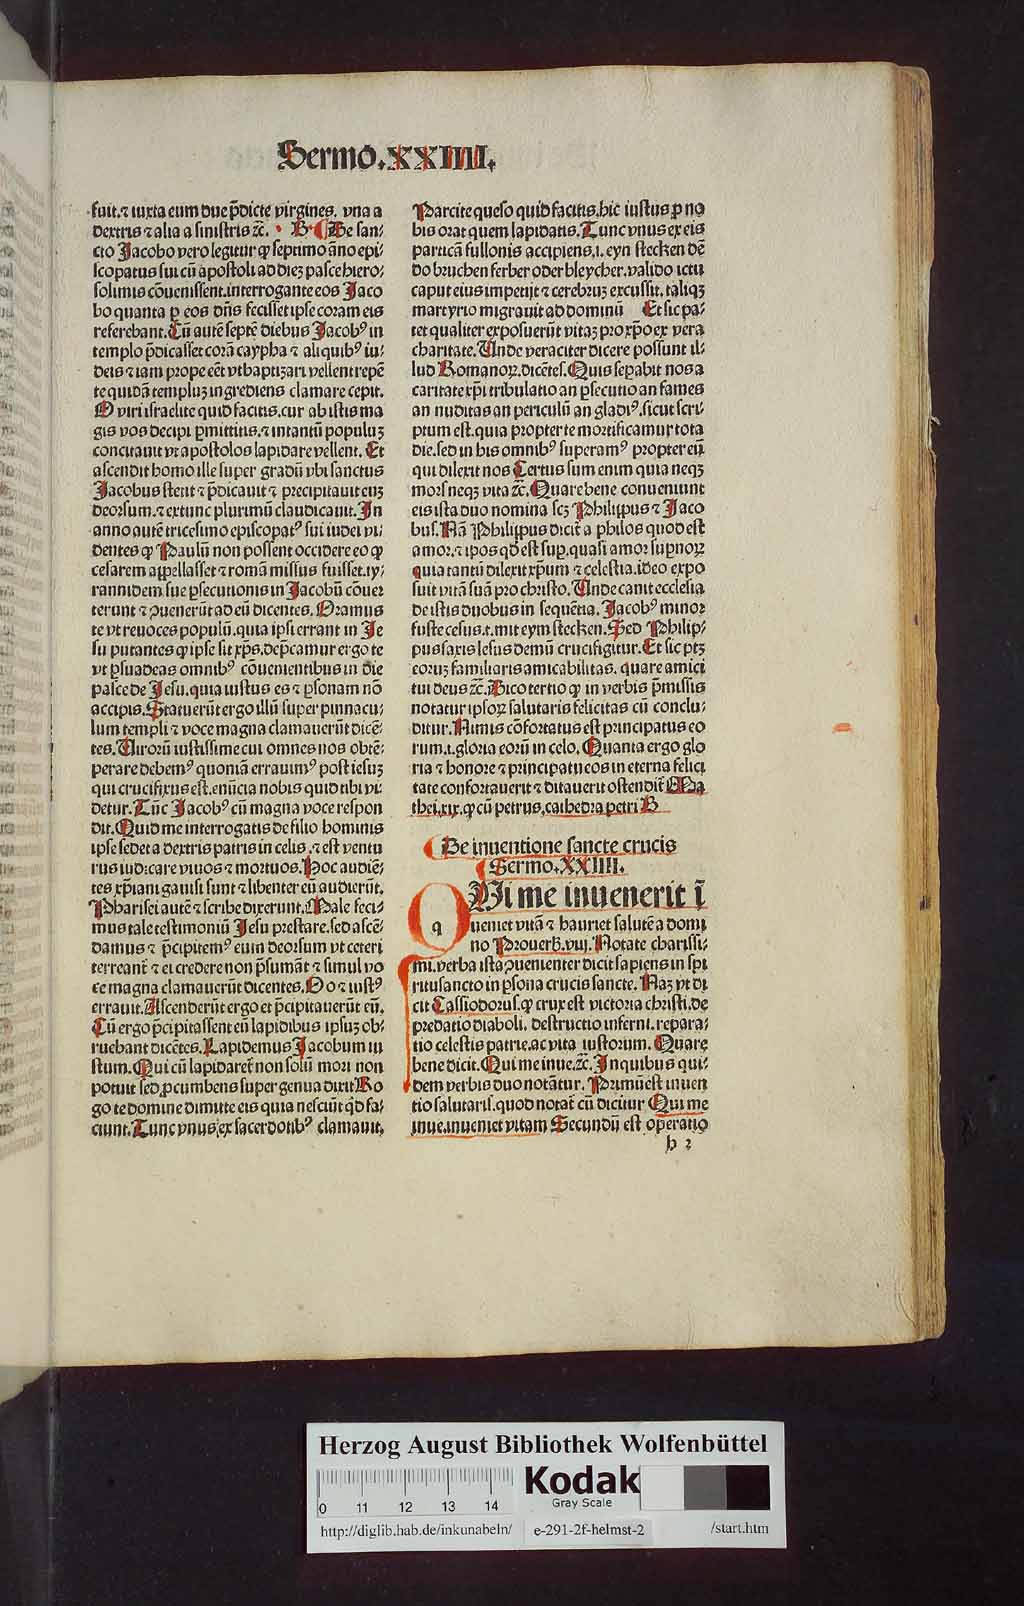 Sermo.XXIIII.
fuit.⁊ iuxta eum due p̄dicte virgines. vna a
dextris ⁊ alia a sinistris ⁊c̄. B De san⸗
cto Jacobo vero legitur ꝙ septimo āno epi⸗
scopatus sui cū apostoli ad diez pasce hiero⸗
solimis cōuenissent.interrogante eos Jaco
bo quanta ꝑ eos dn̄s fecisset ipse coram eis
referebant.Cū autē septē diebus Jacobꝰ in
templo p̄dicasset corā caypha ⁊ aliquibꝰ iu⸗
deis ⁊ iam prope eēt vt baptizari vellent repē
te quidā templuz ingrediens clamare cepit.
O viri israelite quid facitis.cur ab istis ma
gis vos decipi ꝑmittitis.⁊ intantū populuꝫ
concitauit vt apostolos lapidare vellent. Et
ascendit homo ille super gradū vbi sanctus
Jacobus stetit ⁊ p̄dicauit ⁊ precipitauit euꝫ
deorsum.⁊ extunc plurimū claudicauit.In
anno autē tricesimo episcopatꝰ sui iudei vi⸗
dentes ꝙ Paulū non possent occidere eo ꝙ
cesarem appellasset ⁊ romā missus fuisset.ty⸗
rannidem sue ꝑsecutionis in Jacobū cōuer
terunt ⁊ ꝯuenerūt ad eū dicentes. Oramus
te vt reuoces populū.quia ipsi errant in Je
su putantes ꝙ ipse sit xp̄s.dep̄camur ergo te
vt ꝑsuadeas omnibꝰ cōuenientibus in die
pasce de Jesu.quia iustus es ⁊ ꝑsonam nō
accipis.Statuerūt ergo illū super pinnacu⸗
lum templi ⁊ voce magna clamauerūt dicē⸗
tes.Virorū iustissime cui omnes nos obtē⸗
perare debemꝰ quoniā errauimꝰ post iesuꝫ
qui crucifixus est.enūcia nobis quid tibi vi⸗
detur.Tūc Jacobꝰ cū magna voce respon
dit.Quid me interrogatis de filio hominis
ipse sedet a dextris patris in celis.⁊ est ventu
rus iudicare viuos ⁊ mortuos.Hoc audiē⸗
tes xp̄iani gauisi sunt ⁊ libenter eū audierūt.
Pharisei autē ⁊ scribe dixerunt.Male feci⸗
mus tale testimoniū Jesu prestare.sed ascē⸗
damus ⁊ p̄cipitemꝰ eum deorsum vt ceteri
terreant̄ ⁊ ei credere non p̄sumāt ⁊ simul vo
ce magna clamauerūt dicentes.O o ⁊ iustꝰ
errauit.Ascenderūt ergo et p̄cipitauerūt eū.
Cū ergo p̄cipitassent eū lapidibus ipsuꝫ ob⸗
ruebant dicētes.Lapidemus Jacobum iu
stum.Qui cū lapidaret̄ non solū mori non
potuit sed ꝓcumbens super genua dixit Ro
go te domine dimitte eis quia nesciūt qd̄ fa⸗
ciunt.Tunc vnus ex sacerdotibꝰ clamauit.
Parcite queso quid facitis.hic iustus ꝓ no
bis orat quem lapidatis.Tunc vnus ex eis
particā fullonis accipiens.i.eyn stecken dē
do bruchen ferber oder bleycher.valido ictu
caput eius impetijt ⁊ cerebruꝫ excussit.taliqꝫ
martyrio migrauit ad dominū Et sic pa⸗
tet qualiter exposuerūt vitaꝫ pro xp̄o ex vera
charitate.Unde veraciter dicere possunt il⸗
lud Romanoꝝ.dicētes.Quis sepabit nos a
caritate xp̄i tribulatio an ꝑsecutio an fames
an nuditas an periculū an gladiꝰ.sicut scri⸗
ptum est.quia propter te mortificamur tota
die.sed in his omnibꝰ superamꝰ propter eū
qui dilexit nos Certus sum enim quia neqꝫ
mors neqꝫ vita ⁊c̄.Quare bene conueniunt
eis ista duo nomina scꝫ Philippus ⁊ Jaco
bus.Nā Philippus dicit̄ a philos quod est
amor.⁊ ipos qd̄ est suꝑ.quasi amor suꝑnoꝝ
quia tantū dilexit xp̄um ⁊ celestia.ideo expo
suit vitā suā pro christo.Unde canit ecclesia
de istis duobus in sequētia.Jacobꝰ minor
fuste cesus.t.mit eym stecken.Sed Philip⸗
pus saxis lesus demū crucifigitur.Et sic ptꝫ
eoruꝫ familiaris amicabilitas. quare amici
tui deus ⁊c̄.Dico tertio ꝙ in verbis p̄missis
notatur ipsoꝝ salutaris felicitas cū conclu⸗
ditur.Nimis cōfortatus est principatus eo
rum.i.gloria eorū in celo. Quanta ergo glo
ria ⁊ honore ⁊ principatu eos in eterna felici
tate confortauerit ⁊ ditauerit ostendit̄ Ma
thei.xix.ꝙ cū petrus.cathedra petri B
De inuentione sancte crucis
Sermo.XXIIII.
QUi me inuenerit ī
ueniet vitā ⁊ hauriet salutē a domi
no Prouerb̄.viij.Notate charissi⸗
mi.verba ista ꝯuenienter dicit sapiens in spi
ritusancto in ꝑsona crucis sancte. Naꝫ vt di
cit Cassiodorus.ꝙ crux est victoria christi.de
predatio diaboli. destructio inferni.repara⸗
tio celestis patrie.ac vita iustorum. Quare
bene dicit.Qui me inue.⁊c̄.In quibus qui⸗
dem verbis duo notātur. Primū est inuen
tio salutaris.quod notat̄ cū dicitur Qui me
inue.inueniet vitam Secundū est operatio
h 2
Herzog August Bibliothek Wolfenbüttel
0 11 12 13 14
Kodak
Gray Scale
http://diglib.hab.de/inkunabeln/ e-291-2f-helmst-2 /start.htm